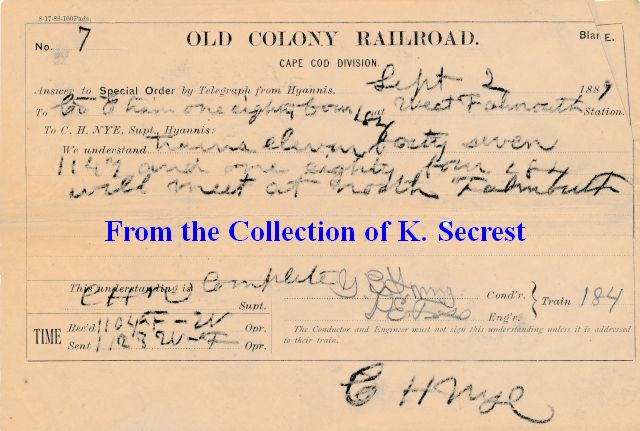 8-17-88-100Pads.
No. 7 OLD COLONY RAILROAD. Blank E.
CAPE COD DIVISION.
Answer to Special Order by Telegraph from Hyannis, Sept 2 1889
To Co Train one eighty four 184 West Falmouth Station.
To C. H. NYE, Supt., Hyannis:
We understand trains eleven forty seven
1147 and one eighty four 184
will meet at north Falmouth
From the Collection of K. Secrest
This understanding is Complete
CHN Supt. Cond'r. Train 184
Eng'r.
TIME Rec'd Opr.
Sent Opr.
The Conductor and Engineer must not sign this understanding unless it is addressed
to their train.
C H Nye